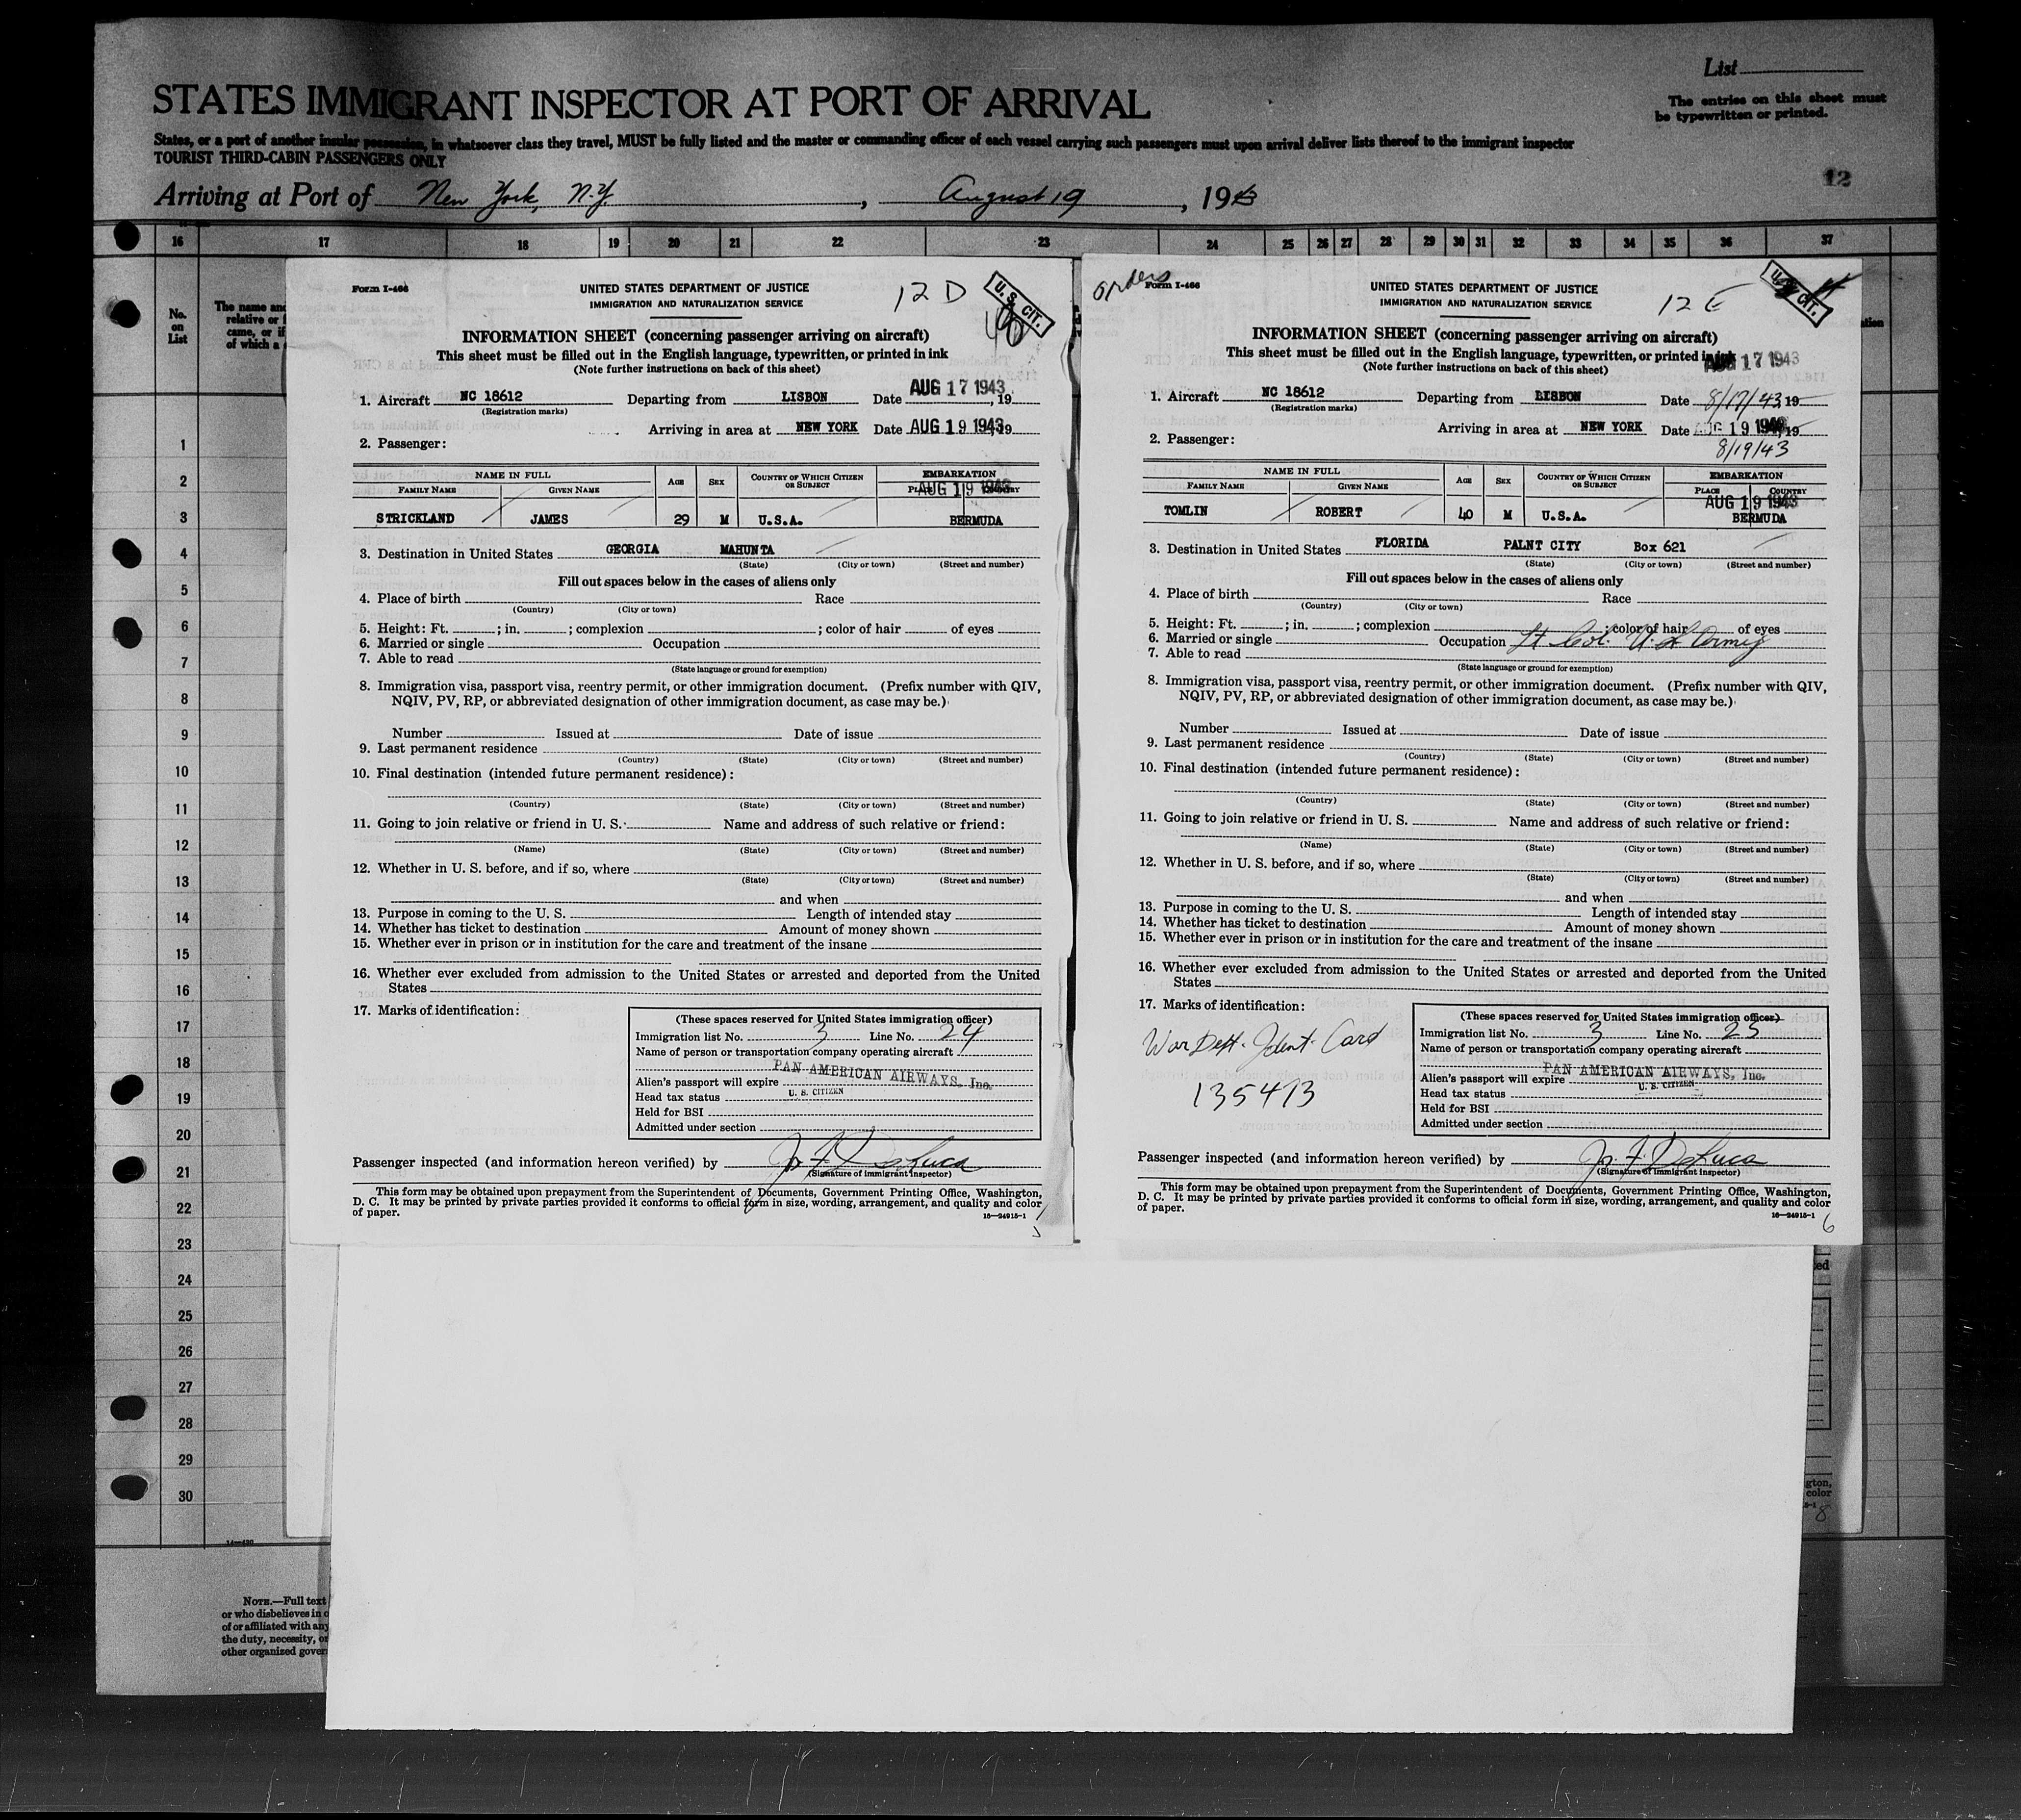 List
STATES IMMIGRANT INSPECTOR AT PORT OF ARRIVAL
The entries on this sheet must
be typewritten or printed.
States, or a port of another insular possession, in whatsoever class they travel, MUST be fully listed and the master or commanding officer of each vessel carrying such passengers must upon arrival deliver lists thereof to the immigrant inspector
TOURIST THIRD-CABIN PASSENGERS ONLY
12
Arriving at Port of New York, N.Y. , August 19 , 1943
16 17 18 19 20 21 22 23 24 25 26 27 28 29 30 31 32 33 34 35 36 37
No.
on
List
The name and
relative or
came, or if
of which a
1
2
3
4
5
6
7
8
9
10
11
12
13
14
15
16
17
18
19
20
21
22
23
24
25
26
27
28
29
30
NOTE.—Full text
or who disbelieves in o
of or affiliated with any
the duty, necessity, or
other organized gover
Form I-466
UNITED STATES DEPARTMENT OF JUSTICE
IMMIGRATION AND NATURALIZATION SERVICE
12 D
U. S. CIT.
INFORMATION SHEET (concerning passenger arriving on aircraft)
This sheet must be filled out in the English language, typewritten, or printed in ink
(Note further instructions on back of this sheet)
1. Aircraft NC 18612 Departing from LISBON Date AUG 17 1943, 19
(Registration marks)
Arriving in area at NEW YORK Date AUG 19 1943, 19
2. Passenger:
NAME IN FULL AGE SEX COUNTRY OF WHICH CITIZEN OR SUBJECT EMBARKATION
FAMILY NAME GIVEN NAME PLACE COUNTRY
AUG 19 1943
STRICKLAND JAMES 29 M U.S.A. BERMUDA
3. Destination in United States GEORGIA MAHUNTA
(State) (City or town) (Street and number)
Fill out spaces below in the cases of aliens only
4. Place of birth Race
(Country) (City or town)
5. Height: Ft. ; in. ; complexion ; color of hair of eyes
6. Married or single Occupation
7. Able to read
(State language or ground for exemption)
8. Immigration visa, passport visa, reentry permit, or other immigration document. (Prefix number with QIV,
NQIV, PV, RP, or abbreviated designation of other immigration document, as case may be.)
Number Issued at Date of issue
9. Last permanent residence
(Country) (State) (City or town) (Street and number)
10. Final destination (intended future permanent residence):
(Country) (State) (City or town) (Street and number)
11. Going to join relative or friend in U. S. Name and address of such relative or friend:
(Name) (State) (City or town) (Street and number)
12. Whether in U. S. before, and if so, where
(State) (City or town) (Street and number)
and when
13. Purpose in coming to the U. S. Length of intended stay
14. Whether has ticket to destination Amount of money shown
15. Whether ever in prison or in institution for the care and treatment of the insane
16. Whether ever excluded from admission to the United States or arrested and deported from the United
States
17. Marks of identification:
(These spaces reserved for United States immigration officer)
Immigration list No. 3 Line No. 24
Name of person or transportation company operating aircraft
PAN AMERICAN AIRWAYS, Inc.
Alien's passport will expire
U. S. CITIZEN
Head tax status
Held for BSI
Admitted under section
Passenger inspected (and information hereon verified) by Jn. F. DeLuca
(Signature of immigrant inspector)
This form may be obtained upon prepayment from the Superintendent of Documents, Government Printing Office, Washington,
D. C. It may be printed by private parties provided it conforms to official form in size, wording, arrangement, and quality and color
of paper.
16—24915-1
orders
Form I-466
UNITED STATES DEPARTMENT OF JUSTICE
IMMIGRATION AND NATURALIZATION SERVICE
12 E
U. S. CIT.
INFORMATION SHEET (concerning passenger arriving on aircraft)
This sheet must be filled out in the English language, typewritten, or printed in ink
AUG 17 1943
(Note further instructions on back of this sheet)
1. Aircraft NC 18612 Departing from LISBON Date 8/17/43, 19
(Registration marks)
Arriving in area at NEW YORK Date AUG 19 1943, 19
8/19/43
2. Passenger:
NAME IN FULL AGE SEX COUNTRY OF WHICH CITIZEN OR SUBJECT EMBARKATION
FAMILY NAME GIVEN NAME PLACE COUNTRY
AUG 19 1943
TOMLIN ROBERT 40 M U.S.A. BERMUDA
3. Destination in United States FLORIDA PALNT CITY Box 621
(State) (City or town) (Street and number)
Fill out spaces below in the cases of aliens only
4. Place of birth Race
(Country) (City or town)
5. Height: Ft. ; in. ; complexion ; color of hair of eyes
6. Married or single Occupation Lt Col. U.S Army
7. Able to read
(State language or ground for exemption)
8. Immigration visa, passport visa, reentry permit, or other immigration document. (Prefix number with QIV,
NQIV, PV, RP, or abbreviated designation of other immigration document, as case may be.)
Number Issued at Date of issue
9. Last permanent residence
(Country) (State) (City or town) (Street and number)
10. Final destination (intended future permanent residence):
(Country) (State) (City or town) (Street and number)
11. Going to join relative or friend in U. S. Name and address of such relative or friend:
(Name) (State) (City or town) (Street and number)
12. Whether in U. S. before, and if so, where
(State) (City or town) (Street and number)
and when
13. Purpose in coming to the U. S. Length of intended stay
14. Whether has ticket to destination Amount of money shown
15. Whether ever in prison or in institution for the care and treatment of the insane
16. Whether ever excluded from admission to the United States or arrested and deported from the United
States
17. Marks of identification:
War Dept. Ident. Card
135413
(These spaces reserved for United States immigration officer)
Immigration list No. 3 Line No. 25
Name of person or transportation company operating aircraft
PAN AMERICAN AIRWAYS, Inc.
Alien's passport will expire
U. S. CITIZEN
Head tax status
Held for BSI
Admitted under section
Passenger inspected (and information hereon verified) by Jn. F. DeLuca
(Signature of immigrant inspector)
This form may be obtained upon prepayment from the Superintendent of Documents, Government Printing Office, Washington,
D. C. It may be printed by private parties provided it conforms to official form in size, wording, arrangement, and quality and color
of paper.
16—24915-1
6
gton,
color
8